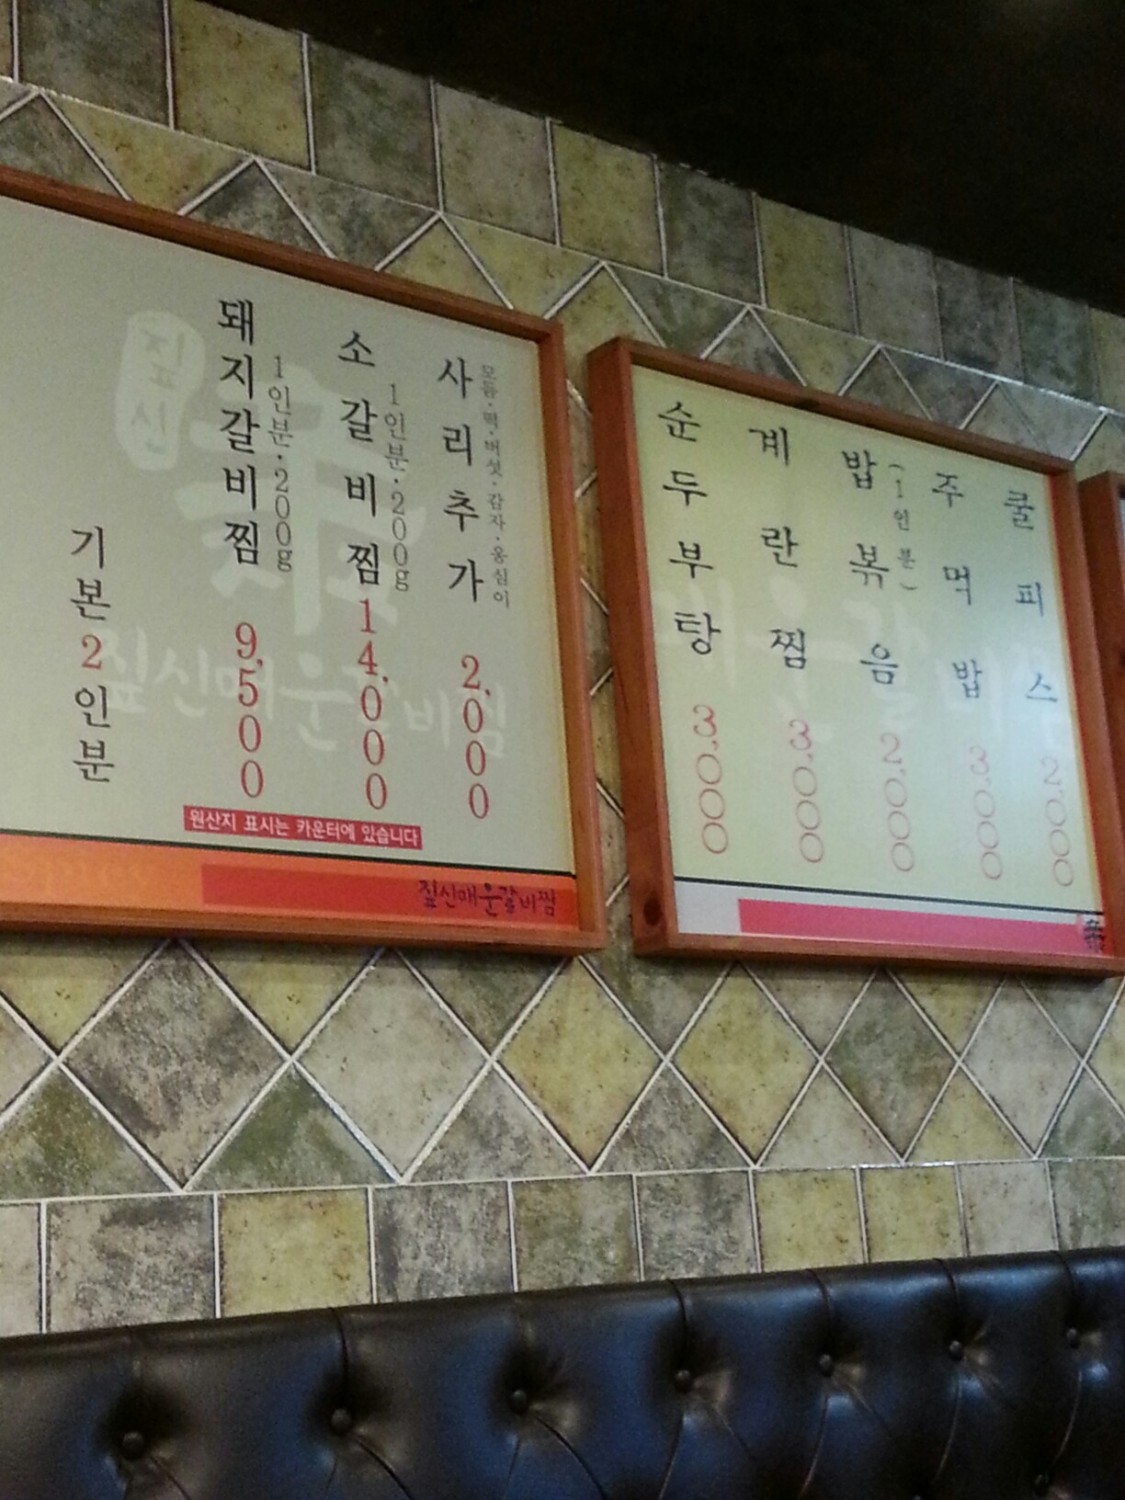 기본 2인분
돼지갈비찜 9,500
1인분·200g
소갈비찜 14,000
1인분·200g
사리추가 2,000
모듬·떡·버섯·감자·옹심이
원산지 표시는 카운터에 있습니다
짚신매운갈비찜
짚신
짚신매운갈비찜
순두부탕 3,000
계란찜 3,000
밥볶음 2,000
(1인분)
주먹밥 3,000
쿨피스 2,000